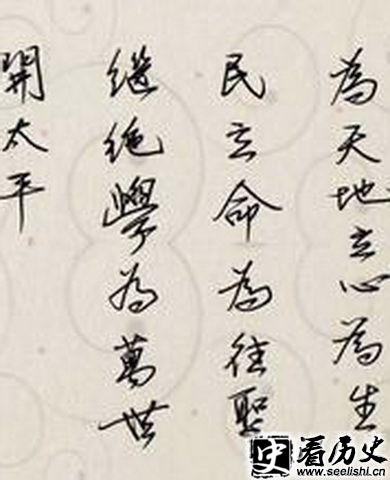 為天地立心為生
民立命為往聖
继绝學為萬世
開太平
史看历史
www.seelishi.cn